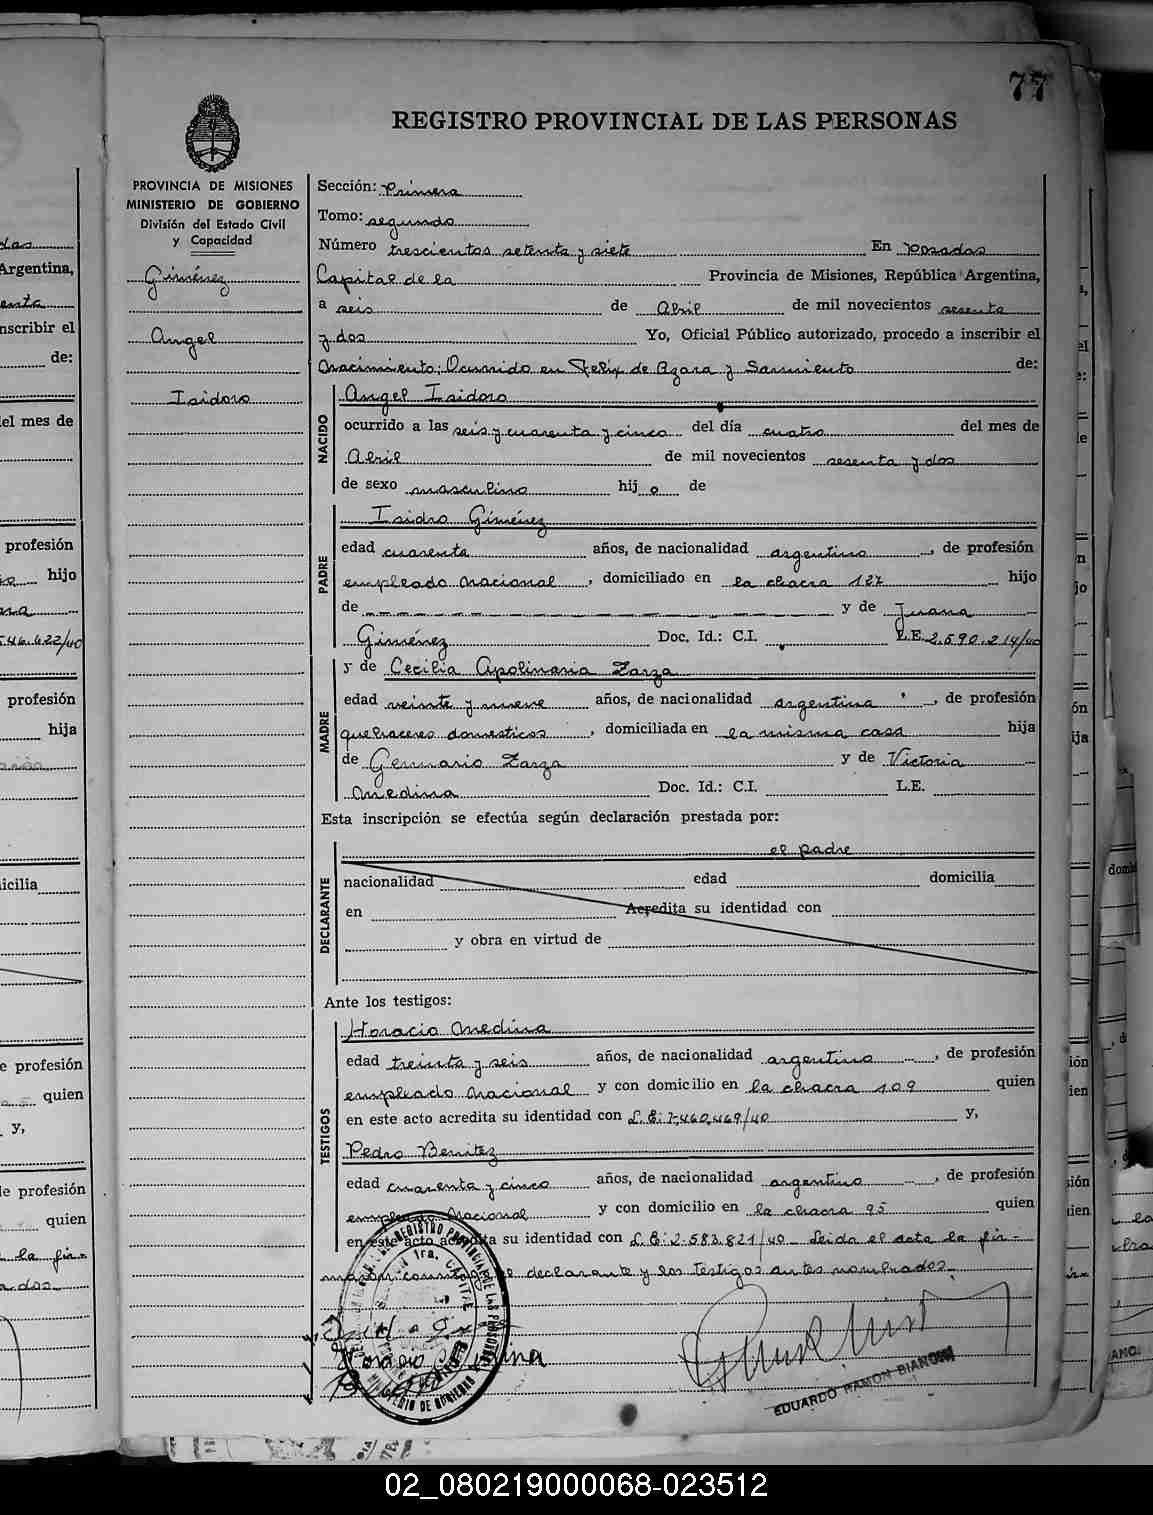 77
REGISTRO PROVINCIAL DE LAS PERSONAS
PROVINCIA DE MISIONES
MINISTERIO DE GOBIERNO
División del Estado Civil
y Capacidad
Giménez
Angel
Isidoro
Sección: Primera
Tomo: segundo
Número trescientos setenta y siete En Posadas
Capital de la Provincia de Misiones, República Argentina,
a seis de Abril de mil novecientos sesenta
y dos Yo, Oficial Público autorizado, procedo a inscribir el
Nacimiento; Ocurrido en Félix de Azara y Sarmiento de:
NACIDO
Angel Isidoro
ocurrido a las seis y cuarenta y cinco del día cuatro del mes de
Abril de mil novecientos sesenta y dos
de sexo masculino hijo de
PADRE
Isidro Giménez
edad cuarenta años, de nacionalidad argentino, de profesión
empleado Nacional, domiciliado en la chacra 127 hijo
de y de Juana
Giménez Doc. Id.: C.I. L.E. 2.590.214/40
MADRE
y de Cecilia Apolinaria Zarza
edad veinte y nueve años, de nacionalidad argentina, de profesión
quehaceres domesticos, domiciliada en la misma casa hija
de Gennario Zarza y de Victoria
Medina Doc. Id.: C.I. L.E.
Esta inscripción se efectúa según declaración prestada por:
DECLARANTE
el padre
nacionalidad edad domicilia
en Acredita su identidad con
y obra en virtud de
Ante los testigos:
TESTIGOS
Horacio Medina
edad treinta y seis años, de nacionalidad argentino, de profesión
empleado Nacional y con domicilio en la chacra 109 quien
en este acto acredita su identidad con L.E: 7.460.469/40 y,
Pedro Benitez
edad cuarenta y cinco años, de nacionalidad argentino, de profesión
empleado Nacional y con domicilio en la chacra 95 quien
en este acto acredita su identidad con L.E: 2.583.821/40 Leida el acta la fir-
maron conmigo el declarante y los testigos antes nombrados.
EDUARDO RAMON BIANCHI
02_080219000068-023512